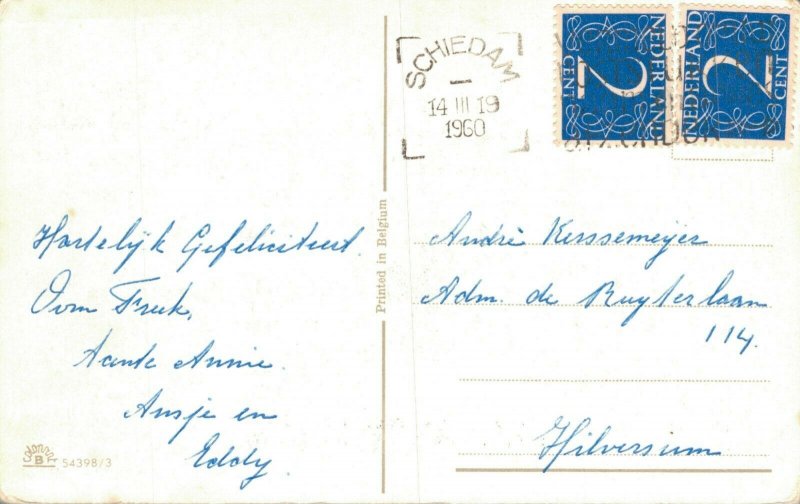 Hartelijk Gefeliciteerd.
Oom Freek,
Tante Annie.
Ansje en
Eddy.
COLORPRINT
B 54398/3
Printed in Belgium
SCHIEDAM
14 III 19
1960
NEDERLAND
2
CENT
NEDERLAND
2
CENT
André Kerssemeijer
Adm. de Ruyterlaan
114.
Hilversum